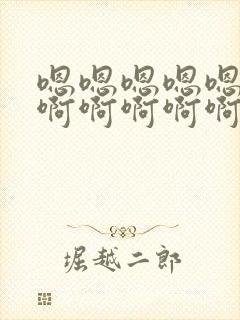 嗯嗯嗯嗯嗯
啊啊啊啊啊
堀越二郎